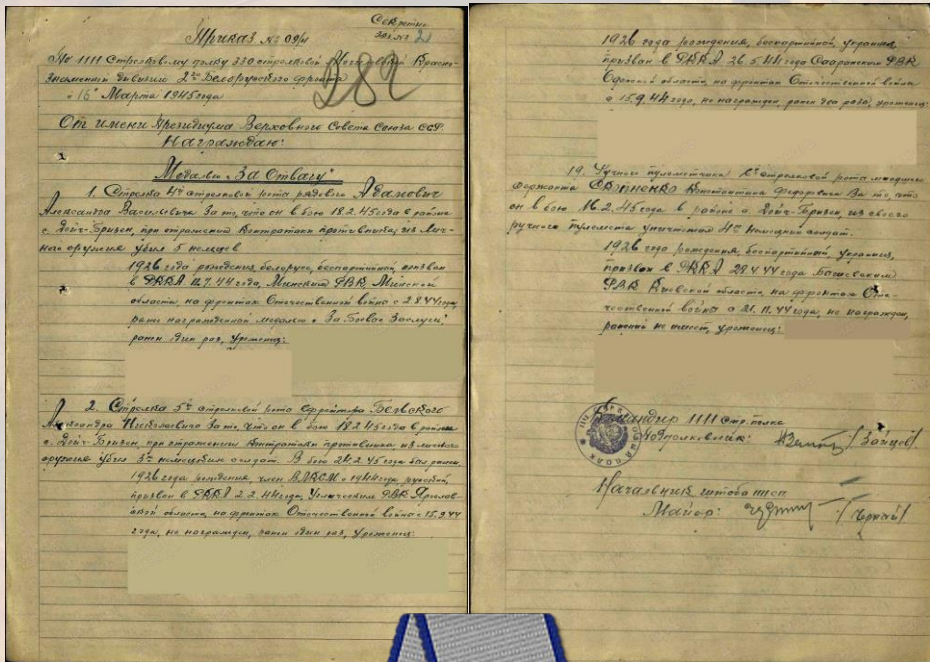 Секретно
экз № 2
Приказ № 09/н
По 1111 Стрелковому полку 330 стрелковой Красно-
знаменной дивизии 2го Белорусского фронта
282
"16" Марта 1945 года
От имени Президиума Верховного Совета Союза ССР
Награждаю:
Медалью "За Отвагу"
1. Стрелка 4й стрелковой роты рядового Адамович
Александра Васильевича За то, что он в бою 18.2.45 года в районе
с. Дойч-Бризен, при отражении контратаки противника, из лич-
ного оружия убил 5 немцев
1926 года рождения, белорус, беспартийный, призван
в РККА 12.7.44 года, Минским РВК Минской
области, на фронтах Отечественной войны с 2.8.44 года,
ранее награжденный медалью "За Боевые Заслуги",
ранен один раз, уроженец:
2. Стрелка 5й стрелковой роты ефрейтора
Александра Николаевича За то, что он в бою 18.2.45 года в районе
с. Дойч-Бризен, при отражении контратаки противника из личного
оружия убил 3х немецких солдат. В бою 24.2.45 года был ранен.
1926 года рождения, член ВЛКСМ с 1944 года, русский,
призван в РККА 2.2.44 года, Угличским РВК Ярослав-
ской области, на фронтах Отечественной войны с 15.9.44
года, не награжден, ранен один раз, уроженец:
1926 года рождения, беспартийный, украинец,
призван в РККА 26.5.44 года РВК
Одесской области, на фронтах Отечественной войны
с 15.9.44 года, не награжден, ранен два раза, уроженец:
19. Ручного пулеметчика 6й стрелковой роты младшего
сержанта Константина Федоровича За то, что
он в бою 16.2.45 года в районе с Дойч-Бризен, из своего
ручного пулемета уничтожил 4х немецких солдат.
1926 года рождения, беспартийный, украинец,
призван в РККА 28.4.44 года
РВК Киевской области, на фронтах Оте-
чественной войны с 21.11.44 года, не награжден,
ранений не имеет, уроженец:
Командир 1111 стр. полка
Подполковник: /Зайцев/
Начальник штаба
Майор: /Черный/